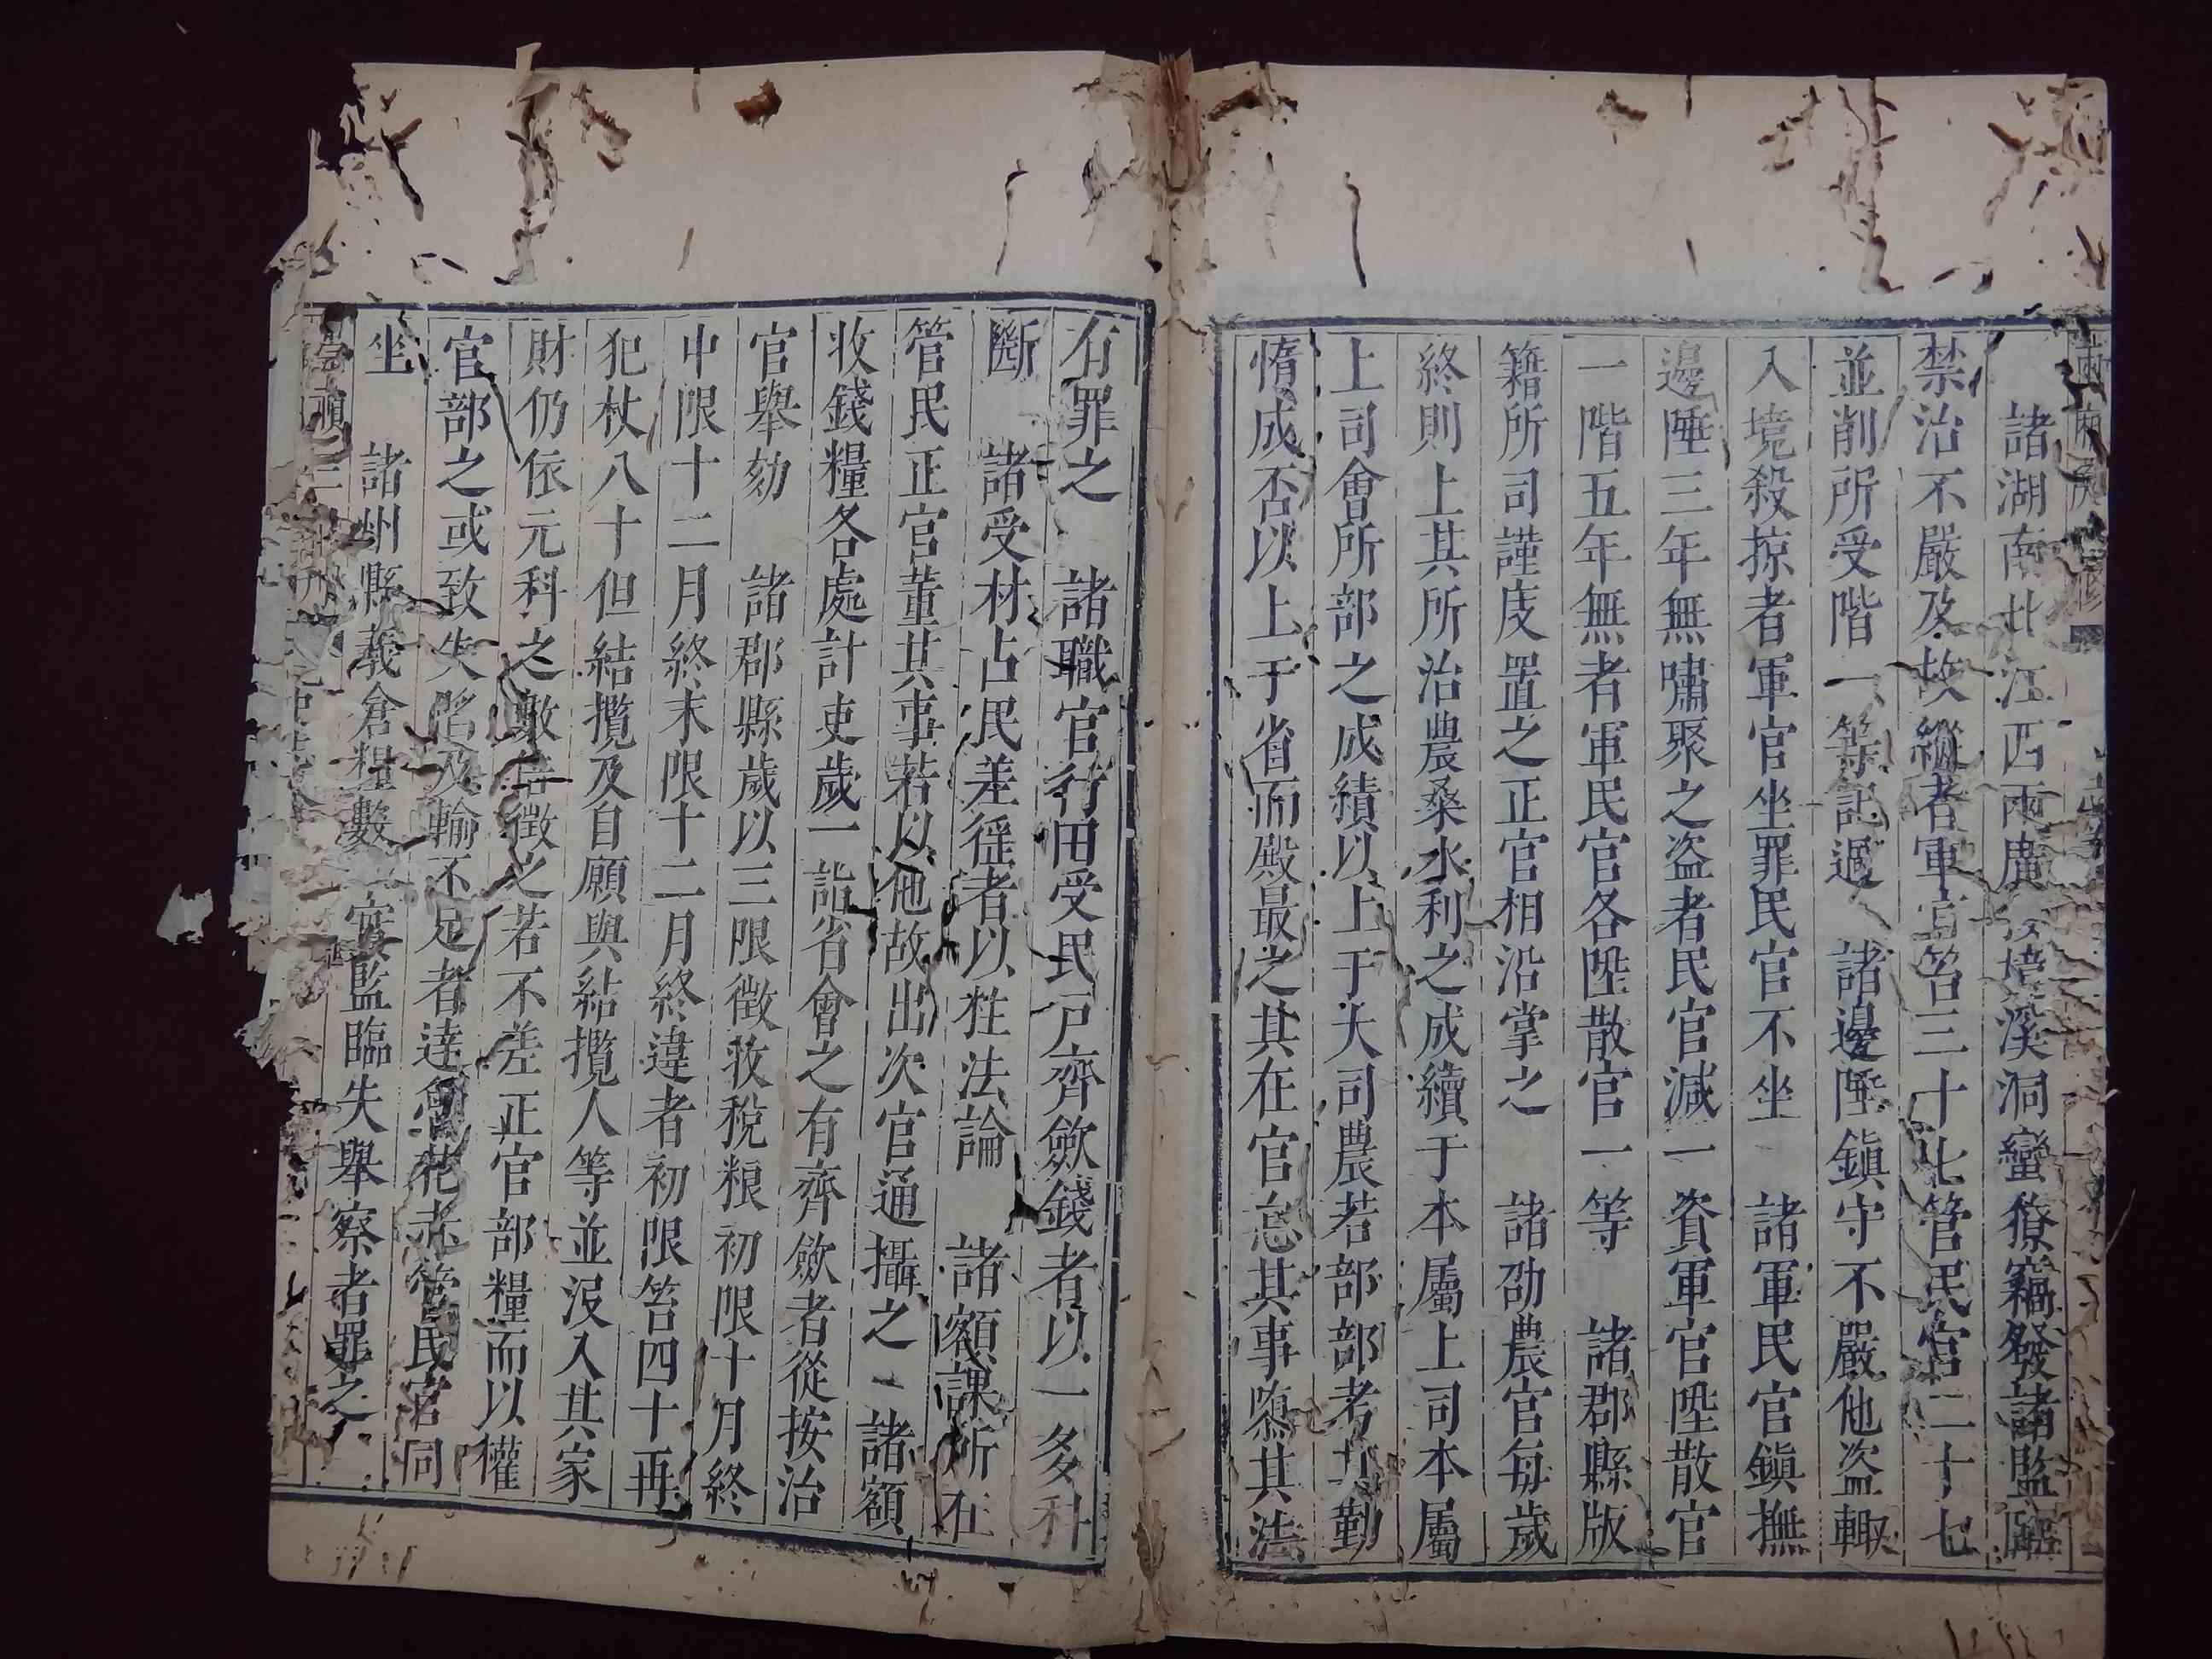 諸湖南北江西兩廣溪洞蠻獠竊發諸監臨
禁治不嚴及故縱者軍官笞三十七管民官二十七
並削所受階一等記過　諸邊陲鎮守不嚴他盗輙
入境殺掠者軍官坐罪民官不坐　諸軍民官鎮撫
邊陲三年無嘯聚之盗者民官減一資軍官陞散官
一階五年無者軍民官各陞散官一等　諸郡縣版
籍所司謹庋置之正官相沿掌之　諸勸農官每歲
終則上其所治農桑水利之成績于本屬上司本屬
上司會所部之成績以上于大司農若部部考其勤
惰成否以上于省而殿最之其在官怠其事隳其法
有罪之　諸職官行田受民戸齊歛錢者以一多科
斷　諸受材占民差徭者以枉法論　諸額課所在
管民正官董其事若以他故出次官通攝之　諸額
收錢糧各處計吏歲一詣省會之有齊歛者從按治
官舉劾　諸郡縣歲以三限徵收稅粮初限十月終
中限十二月終末限十二月終違者初限笞四十再
犯杖八十但結攬及自願與結攬人等並没入其家
財仍依元科之數倍徵之若不差正官部糧而以權
官部之或致失陷及輸不足者達魯花赤管民官同
坐　諸州縣義倉糧數實監臨失舉察者罪之